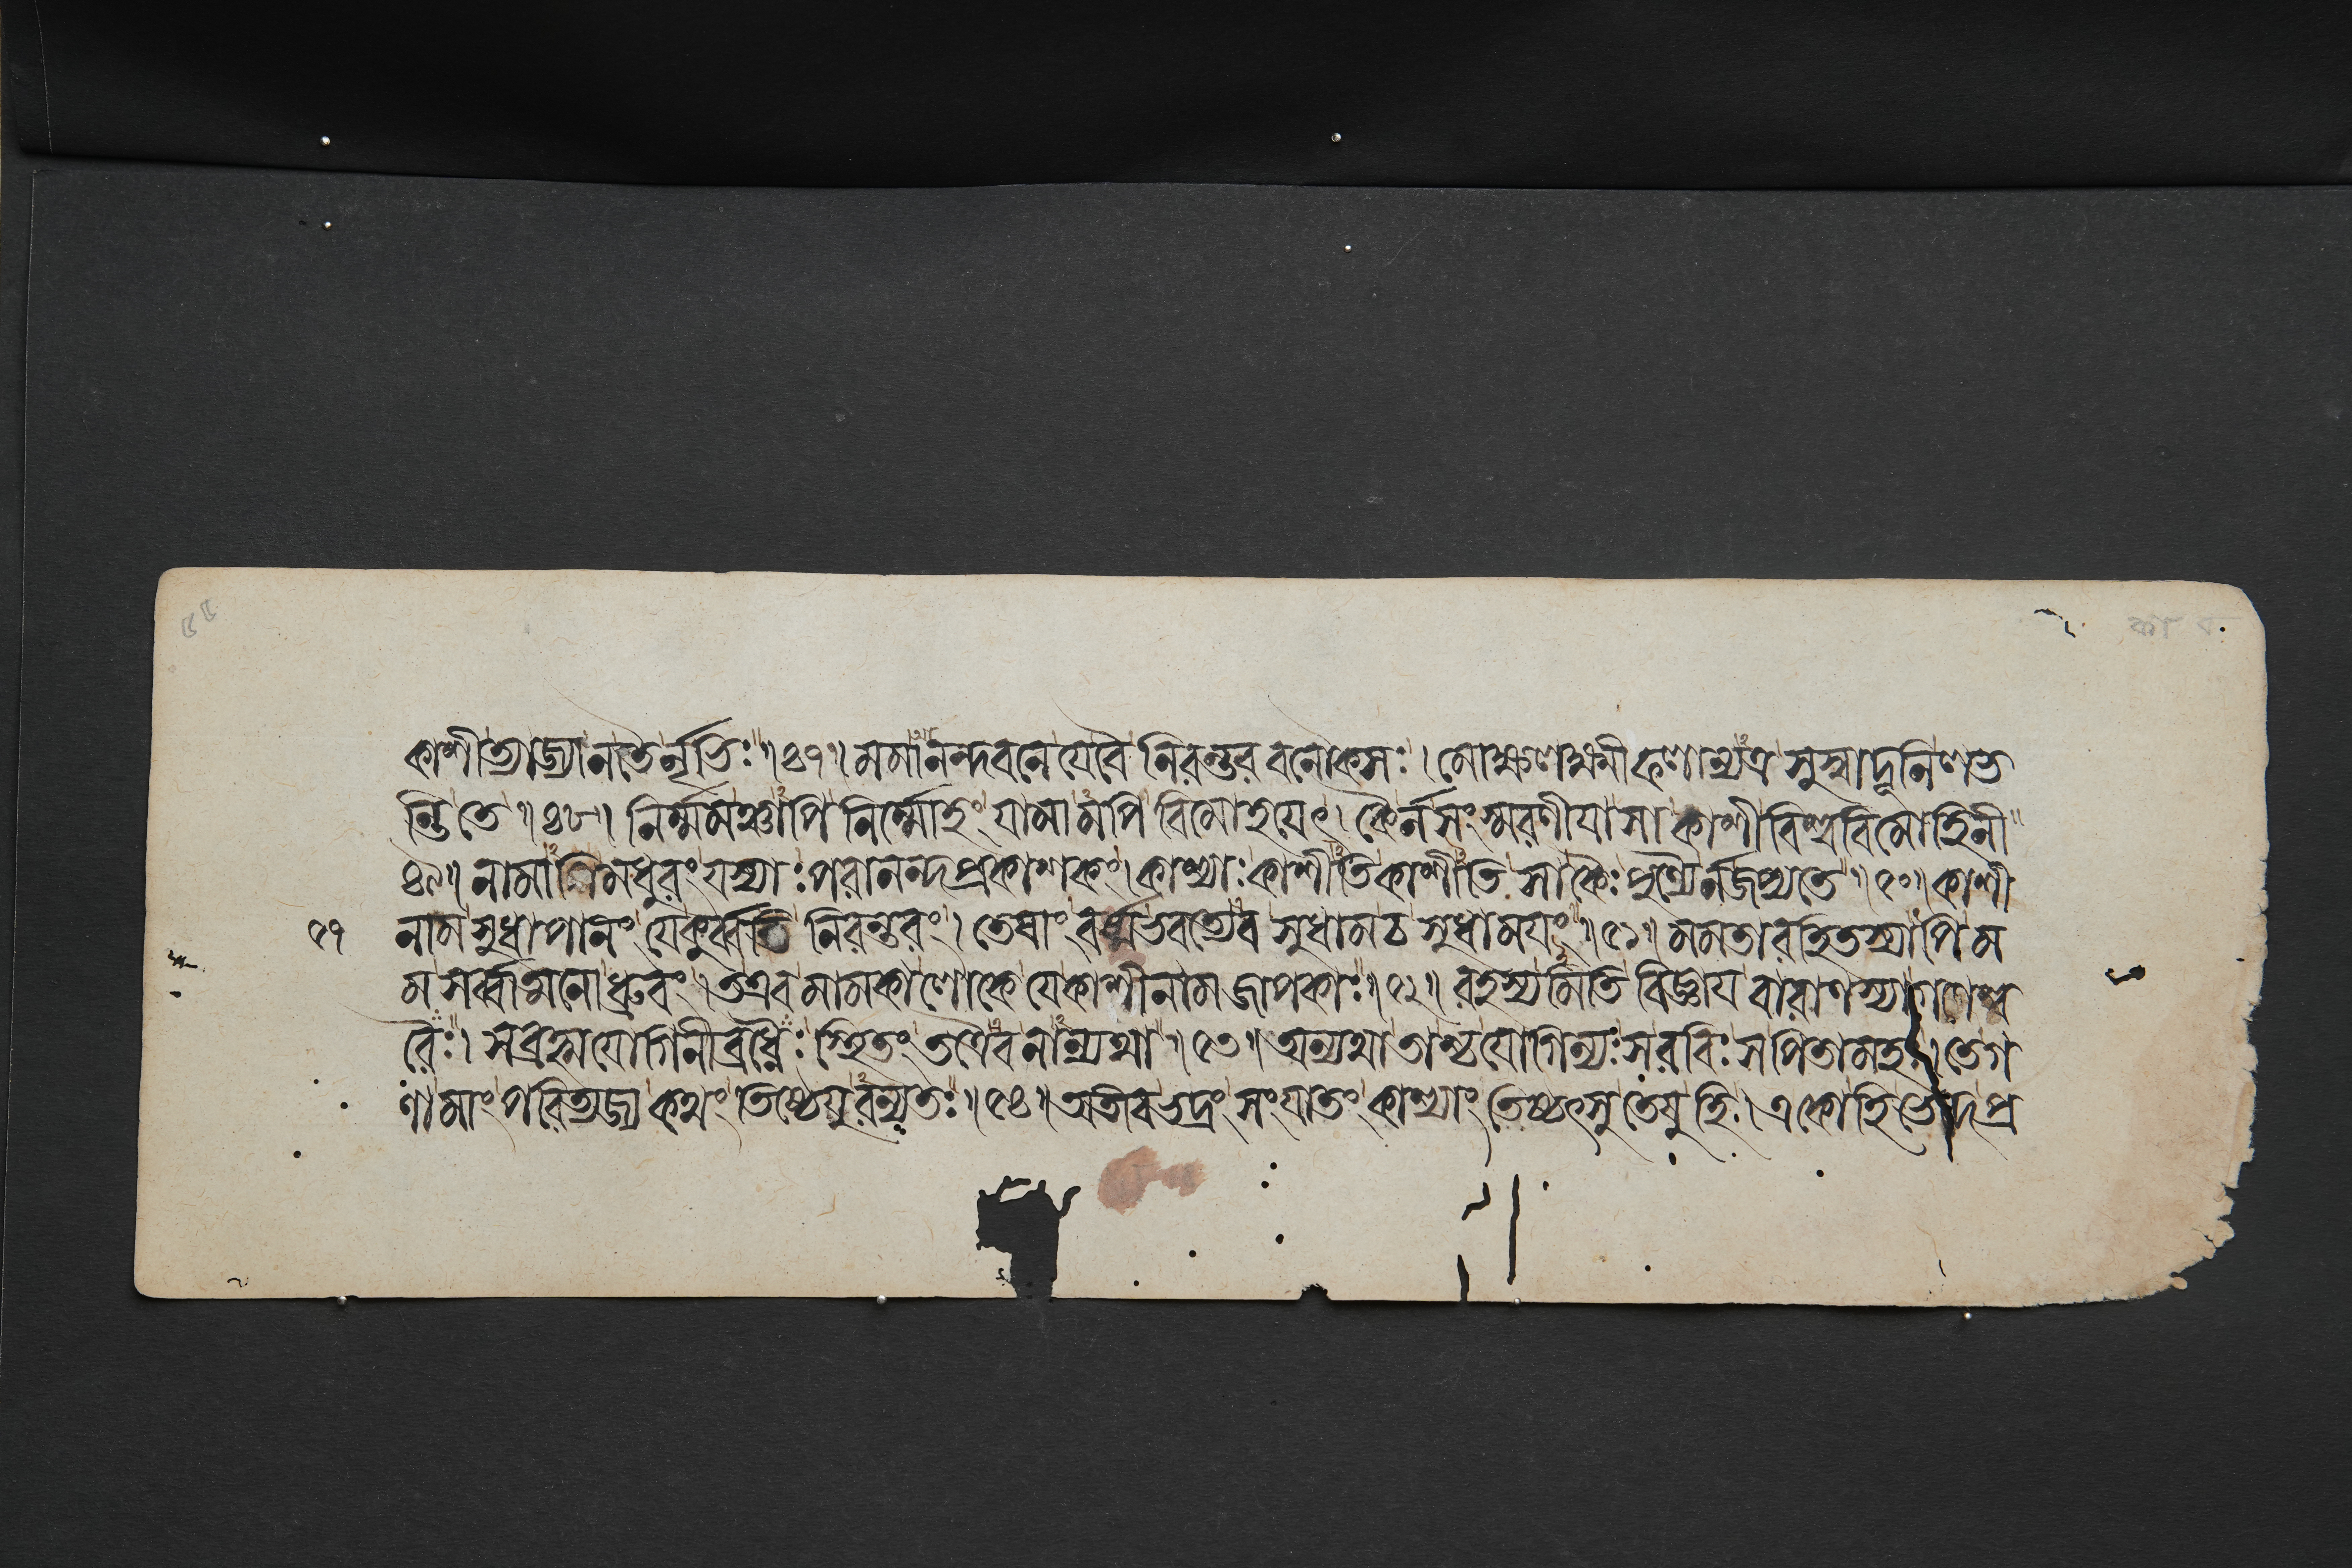 কাশীত্যাজ্যানতৈর্নৃভিঃ ॥৪৭॥ মমানন্দবনে যেবৈ নিরন্তর বনৌকসঃ । মোক্ষলক্ষ্মীফলান্যত্র সুস্বাদূনিলভ
ন্তি তে ॥৪৮॥ নির্ম্মমঞ্চাপি নির্ম্মোহং যামামপি বিমোহযেৎ । কৈর্নসংস্মরণীযা সা কাশী বিশ্ববিমোহিনী
৪৯॥ নামাপি মধুরং যস্যাঃ পরানন্দপ্রকাশকং । কাশ্যাঃ কাশীতিকাশীতি সাকৈঃ পুণ্যৈর্নজপ্যতে ॥৫০॥ কাশী
৫৭ নামসুধাপানং যেকুর্ব্বন্তি নিরন্তরং । তেষাং বর্ষ্মভবত্যেব সুধামঠসুধামযং ॥৫১॥ মমতারহিতস্যাপি ম
ম সর্ব্বাত্মনোধ্রুবং । তএব মামকালোকে যেকাশীনাম জাপকাঃ ॥৫২॥ রহস্যমিতি বিজ্ঞায বারাণস্যাগণেশ্ব
রৈঃ । সব্রহ্মযোগিনীব্রধ্নৈঃ স্থিতং তত্রৈবনান্যথা ॥৫৩॥ অন্যথা তাশ্চযোগিন্যঃ সরবিঃ সপিতামহঃ । তেগ
ণামাং পরিত্যজ্য কথং তিষ্ঠেযুরন্যতঃ ॥৫৪॥ অতীবভদ্রং সংযাতং কাশ্যাং তিষ্ঠৎসু তেষুহি । একোহিভেদপ্র